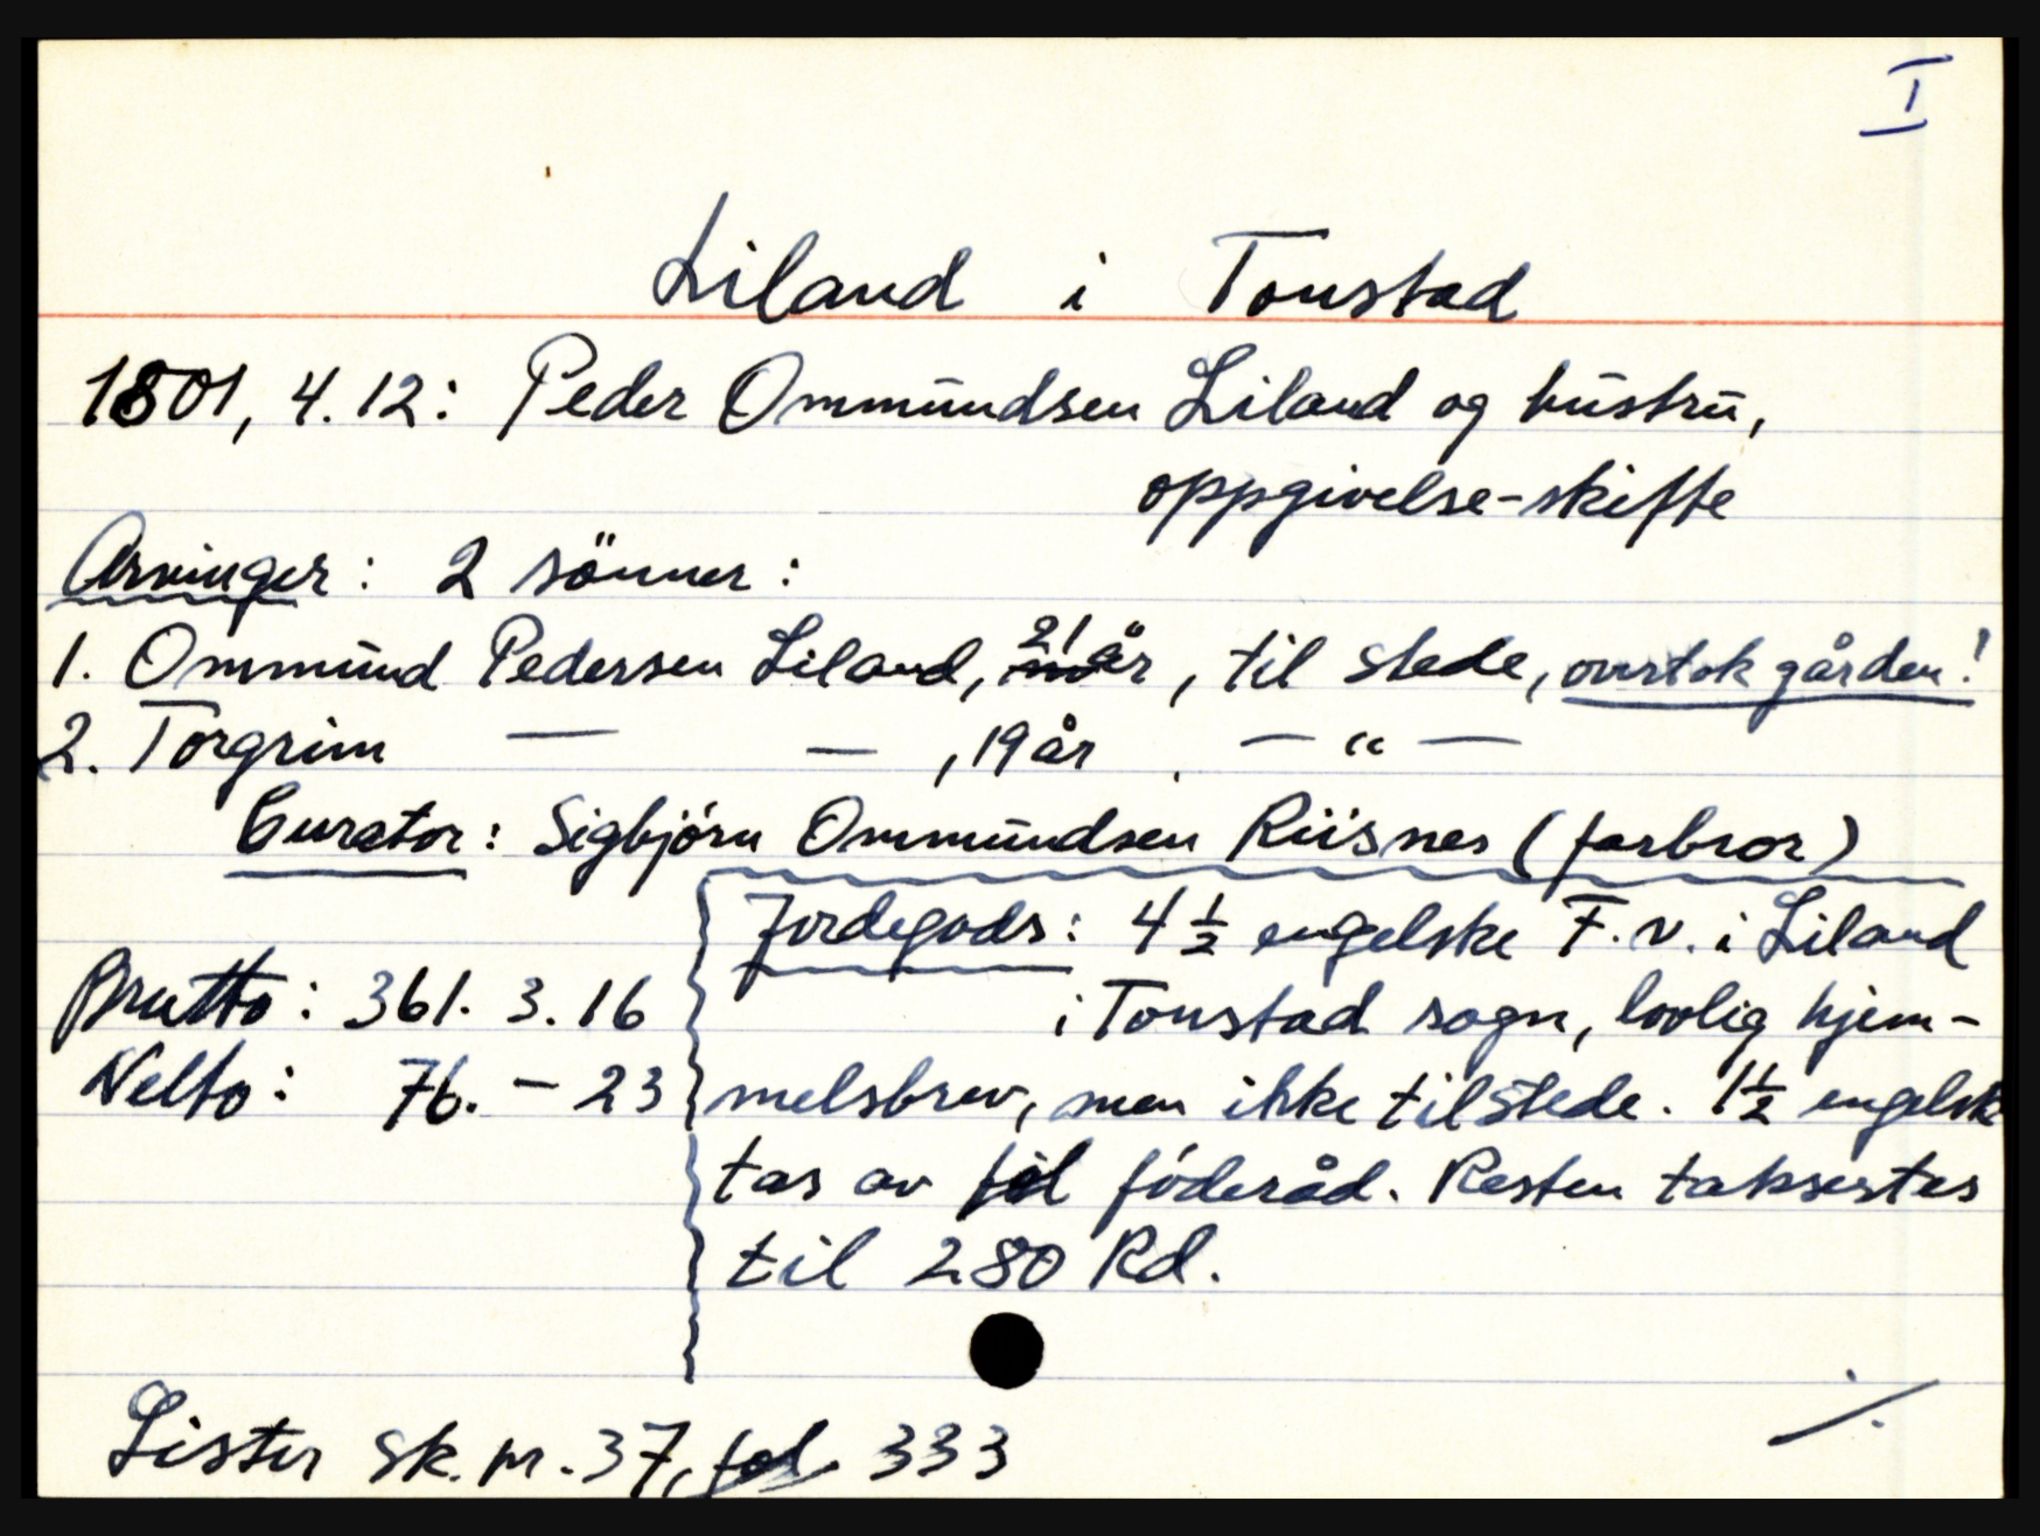 I
Liland i Tonstad
1801, 4.12: Peder Ommundsen Liland og hustru,
oppgivelse-skifte
Arvinger: 2 sönner:
1. Ommund Pedersen Liland, 21 år, til stede, overtok gården!
2. Torgrim — — , 19 år, — " —
Curator: Sigbjørn Ommundsen Riisnes (farbror)
Jordegods: 4 1/2 engelske F.v. i Liland
i Tonstad sogn, lovlig hjem-
melsbrev, men ikke tilstede. 1 1/2 engelske
tas av til föderåd. Resten taksertes
til 280 Rd.
Brutto: 361. 3. 16
Netto: 76. – 23
Lister sk. pr. 37, fol. 333